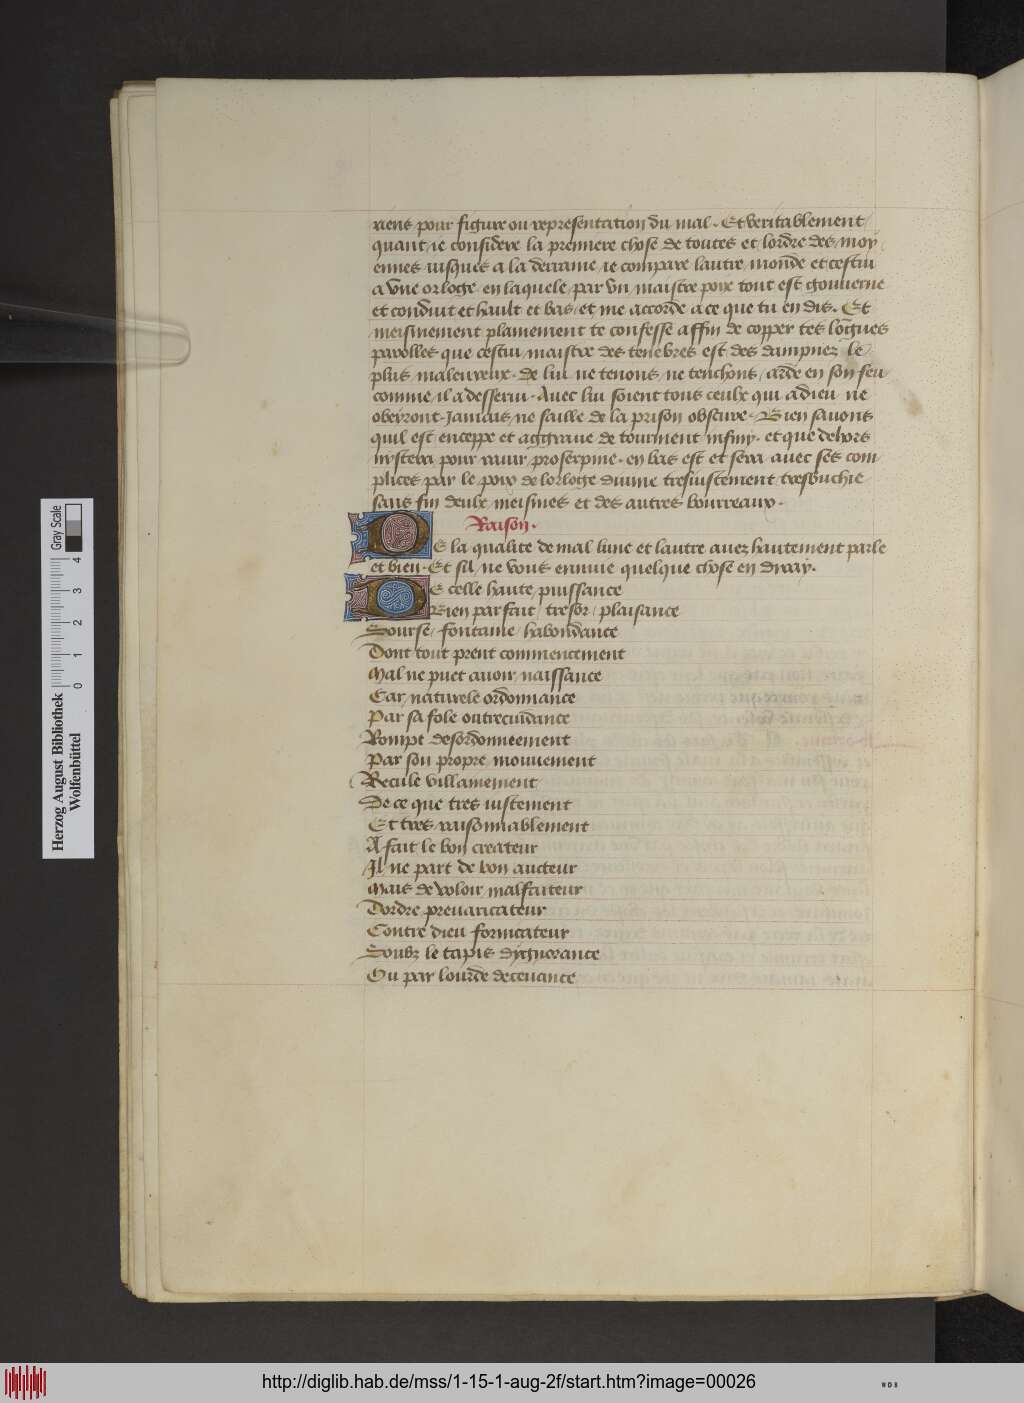 riens pour figure ou representation du mal. Et veritablement
quant ie considere la premiere chose de toutes et lordre des moy
ennes iusques a la derraine ie compare lautre monde et cestui
a vne orloge en laquele par vn maistre poix tout est gouuerne
et conduit et hault et bas et me accorde a ce que tu en dis. Et
meismement plainement te confesse affin de copper tes lõgues
parolles que cestui maistre des tenebres est des dampnez le
plus maleureux. de lui ne tenons ne tenchons arde en son feu
comme il a desserui. Auec lui soient tous ceulx qui a dieu ne
obeyront. Jamais ne saille de la prison obscure. Bien sauons
quil est enceppe et aggraue de tourment infiny. et que dehors
nystera pour rauir proserpine. en bas est et sera auec ses com
plices par le poix de lorloge diuine tresiustement tresbuchie
sans fin deulx meismes et des autres bourreaux.
Raison.
DE la qualite de mal lune et lautre auez hautement parle
et bien. Et sil ne vous ennuie quelque chose en diray.
DE celle haute puissance
Bien parfait tresor plaisance
Sourse fontaine habondance
Dont tout prent commencement
Mal ne puet auoir naissance
Car naturele ordonnance
Par sa fole oultrecuidance
Rompt desordonneement
Par son propre mouuement
Recule villainement
De ce que tres iustement
Et tres raisonnablement
A fait le bon createur
Il ne part de bon aucteur
Mais de voloir malfaiteur
Dordre preuaricateur
Contre dieu fornicateur
Soubz le tapis dygnorance
Ou par lourde deceuance
Herzog August Bibliothek
Wolfenbüttel
0 1 2 3 4
Gray Scale
http://diglib.hab.de/mss/1-15-1-aug-2f/start.htm?image=00026
WDB